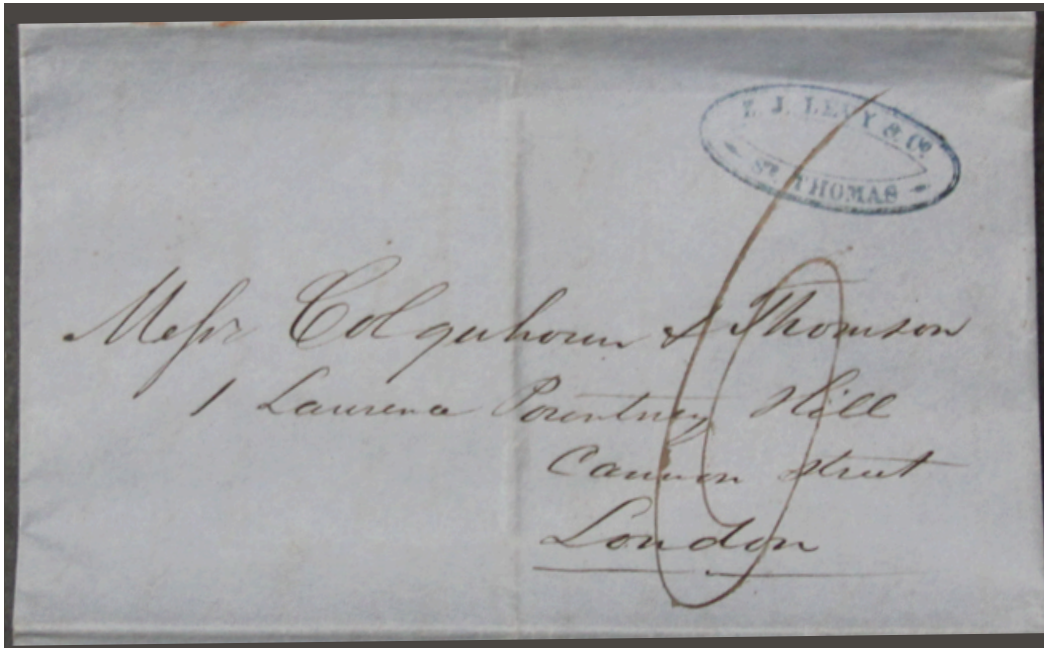 Z. J. LEVY & Co.
St. THOMAS
Messr Colquhoun & Thomson
1 Laurence Pountney Hill
Cannon Street
London
6